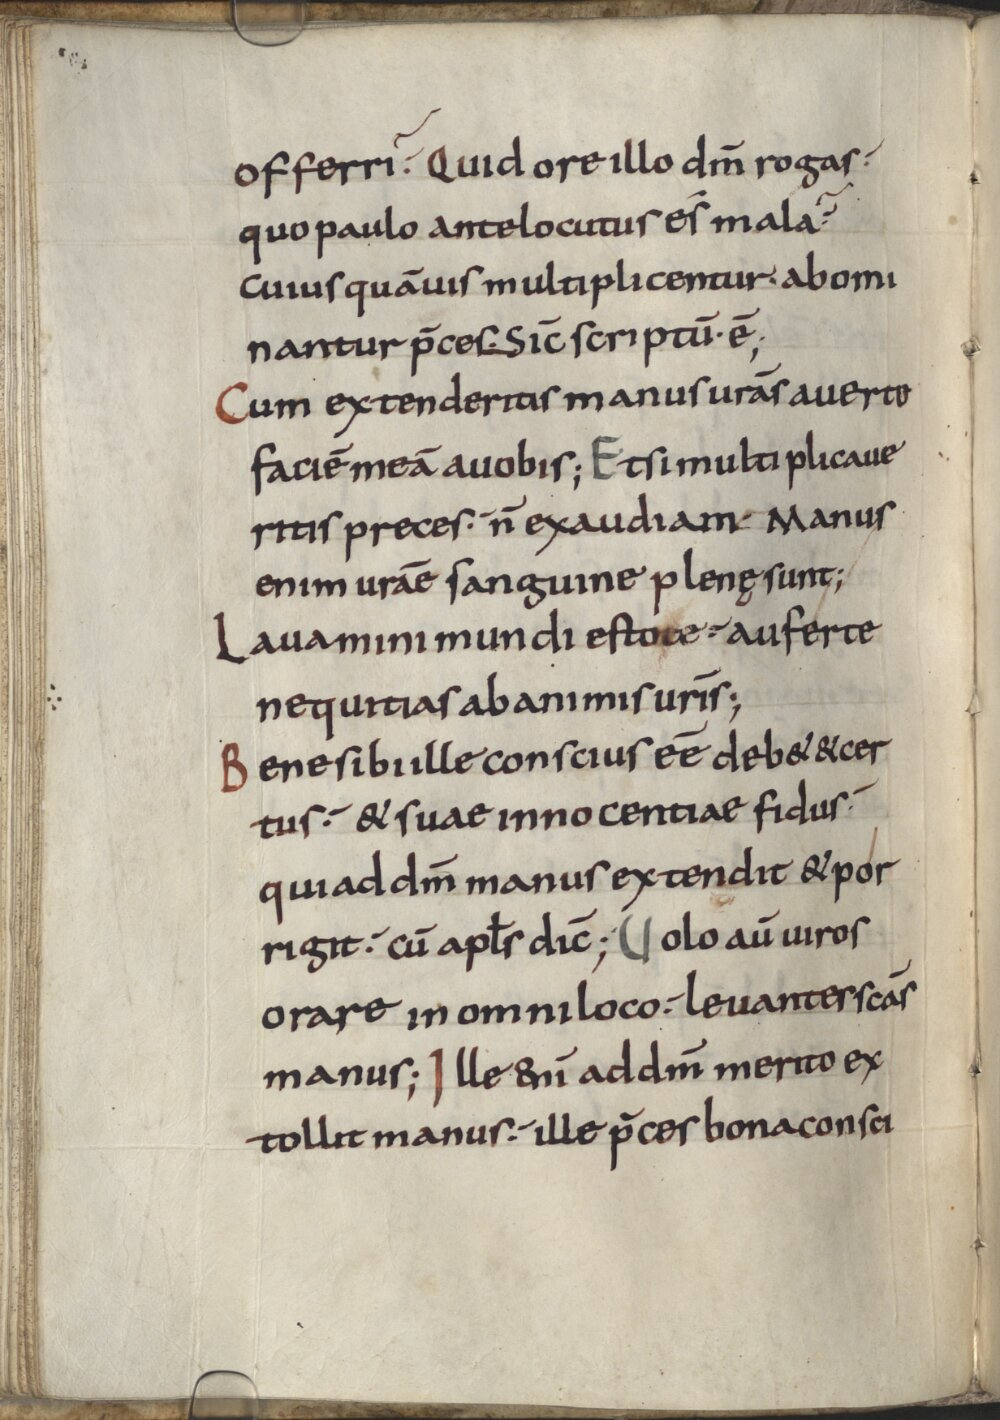 offerri? Quid ore illo dm̄ rogas·
quo paulo ante locutus ēs mala?
cuius quāuis multiplicentur· abomi
nantur p̄ces. Sic̄ scriptū· ē;
Cum extenderitis manus urās auerto
faciē meā auobis; Et si multiplicaue
ritis preces· n̄ exaudiam· Manus
enim urāe sanguine plenę sunt;
Lauamini mundi estote· auferte
nequitias ab animis urīs;
Bene sibi ille conscius eē deb& & cer
tus· & suae innocentiae fidus·
qui ad dm̄ manus extendit & por
rigit· cū apl̄s dic̄; Uolo aū uiros
orare in omni loco· leuantes scās
manus; Ille &nī ad dm̄ merito ex
tollit manus· ille p̄ces bona consci